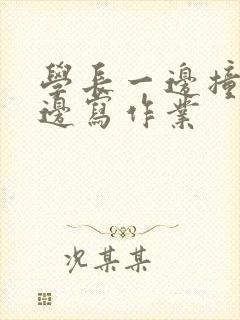 學長一邊撞
邊寫作業
况某某